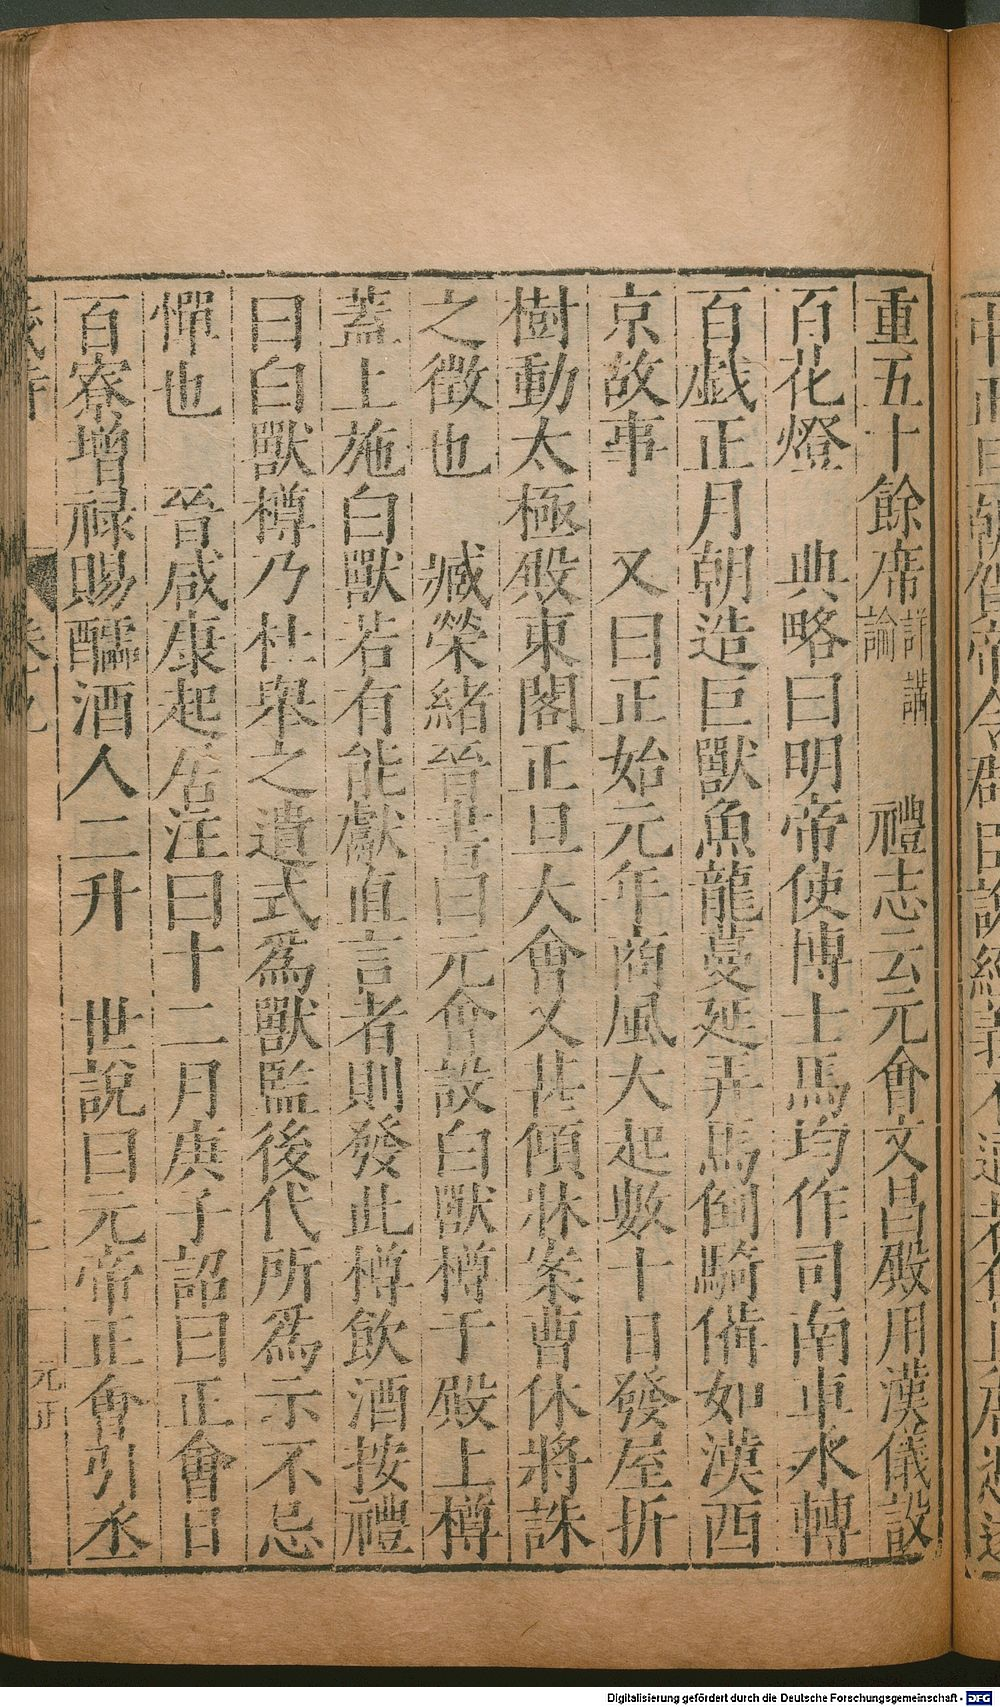 重五十餘席詳講論　禮志云元會文昌殿用漢儀設
百花燈　典略曰明帝使博士馬均作司南車水轉
百戯正月朝造巨獸魚龍蔓延弄馬倒騎備如漢西
京故事　又曰正始元年商風大起數十日發屋折
樹動太極殿東閣正旦大會又甚傾牀案曹休將誅
之徵也　臧榮緒晉書曰元會設白獸樽于殿上樽
蓋上施白獸若有能獻直言者則發此樽飲酒按禮
曰白獸樽乃杜舉之遺式爲獸監後代所爲示不忌
憚也　晉咸康起居注曰十二月庚子詔曰正會日
百寮增祿賜醽酒人二升　世說曰元帝正會引丞
歲時　卷九
Digitalisierung gefördert durch die Deutsche Forschungsgemeinschaft - DFG